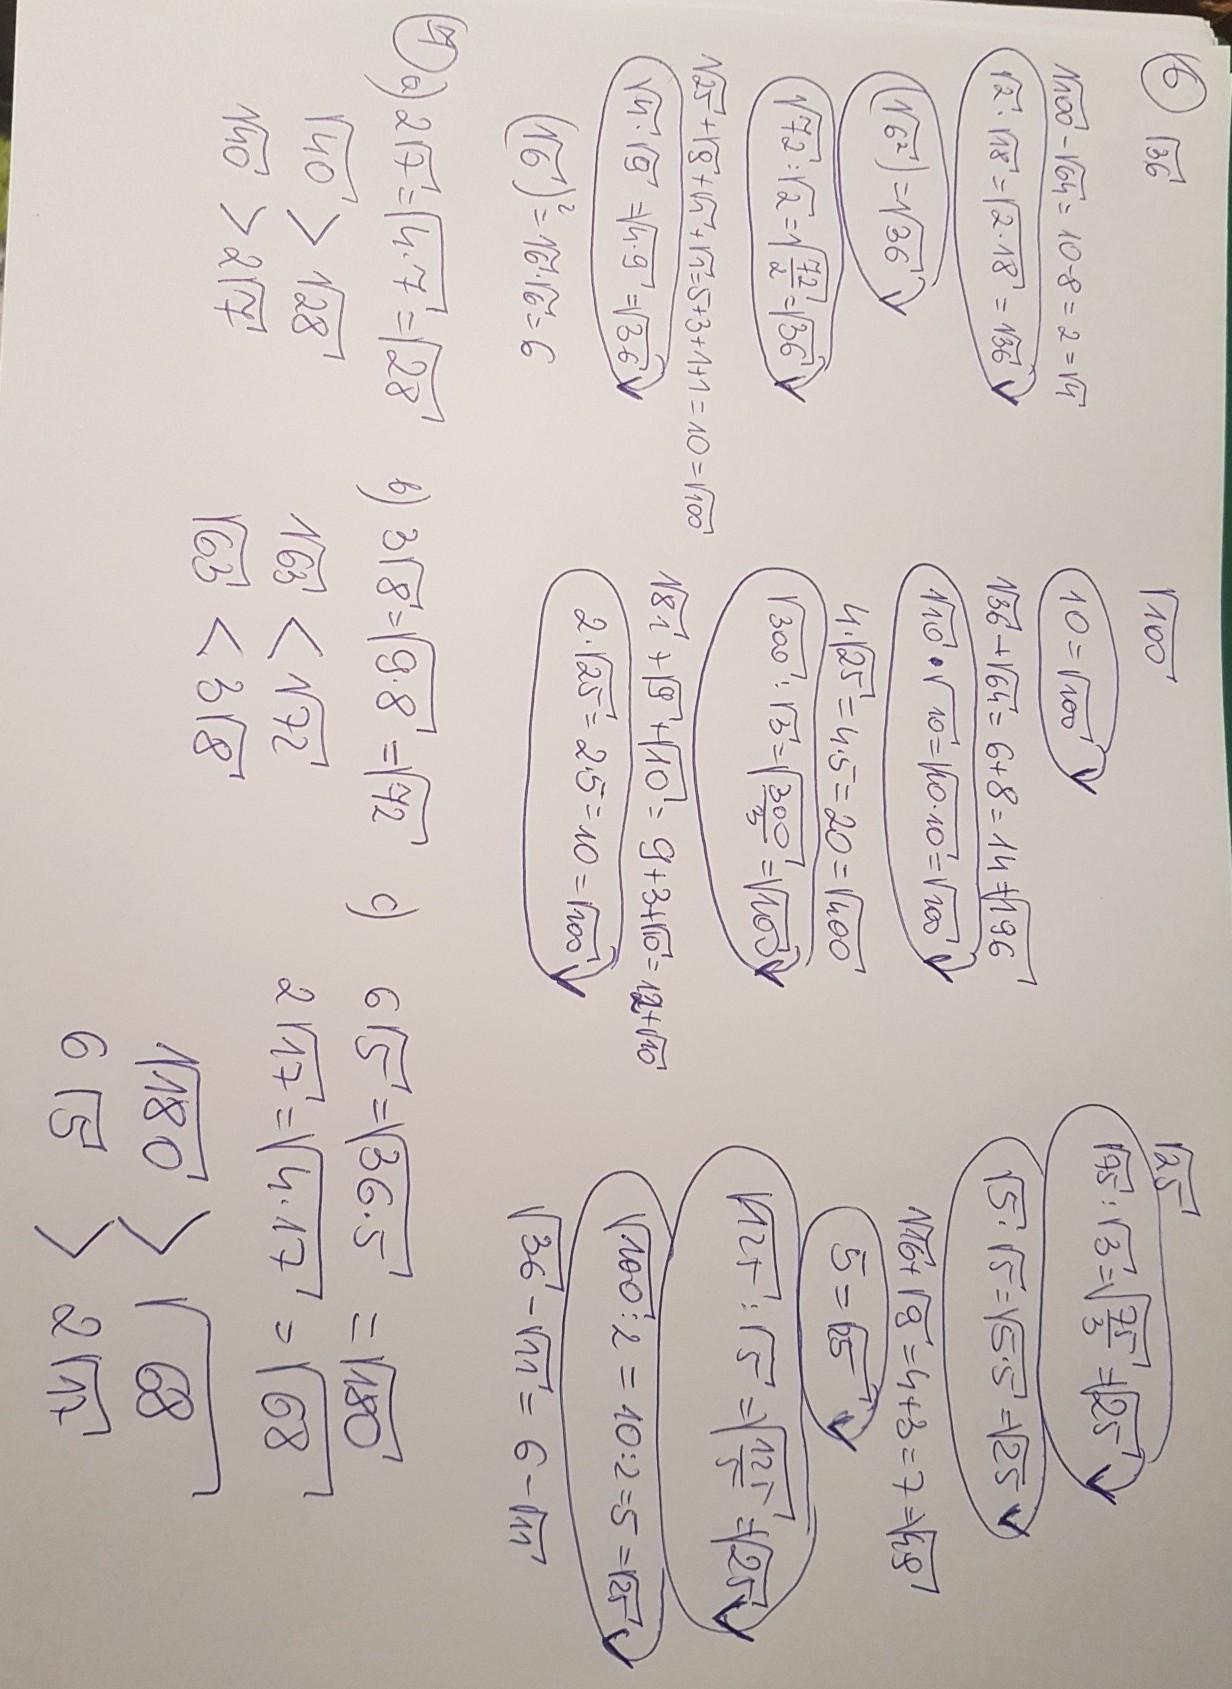 16 √36
√100 - √64 = 10 - 8 = 2 = √4
√2 · √18 = √2·18 = √36 ✓
(√6²) = √36 ✓
√72 : √2 = √72/2 = √36 ✓
√25 + √9 + √1 + √1 = 5+3+1+1 = 10 = √100
√4 · √9 = √4·9 = √36 ✓
(√6)² = √6·√6 = 6
√100
10 = √100 ✓
√36 + √64 = 6+8 = 14 = √196
√10 · √10 = √10·10 = √100 ✓
4·√25 = 4·5 = 20 = √400
√300 : √3 = √300/3 = √100 ✓
√81 + √9 + √10 = 9+3+√10 = 12+√10
2·√25 = 2·5 = 10 = √100 ✓
√25
√75 : √3 = √75/3 = √25 ✓
√5 · √5 = √5·5 = √25 ✓
√16 + √9 = 4+3 = 7 = √49
5 = √25 ✓
√125 : √5 = √125/5 = √25 ✓
√100 : 2 = 10:2 = 5 = √25 ✓
√36 - √11 = 6 - √11
a) 2√7 = √4·7 = √28
√40 > √28
√40 > 2√7
b) 3√8 = √9·8 = √72
√63 < √72
√63 < 3√8
c) 6√5 = √36·5 = √180
2√17 = √4·17 = √68
√180 > √68
6√5 > 2√17